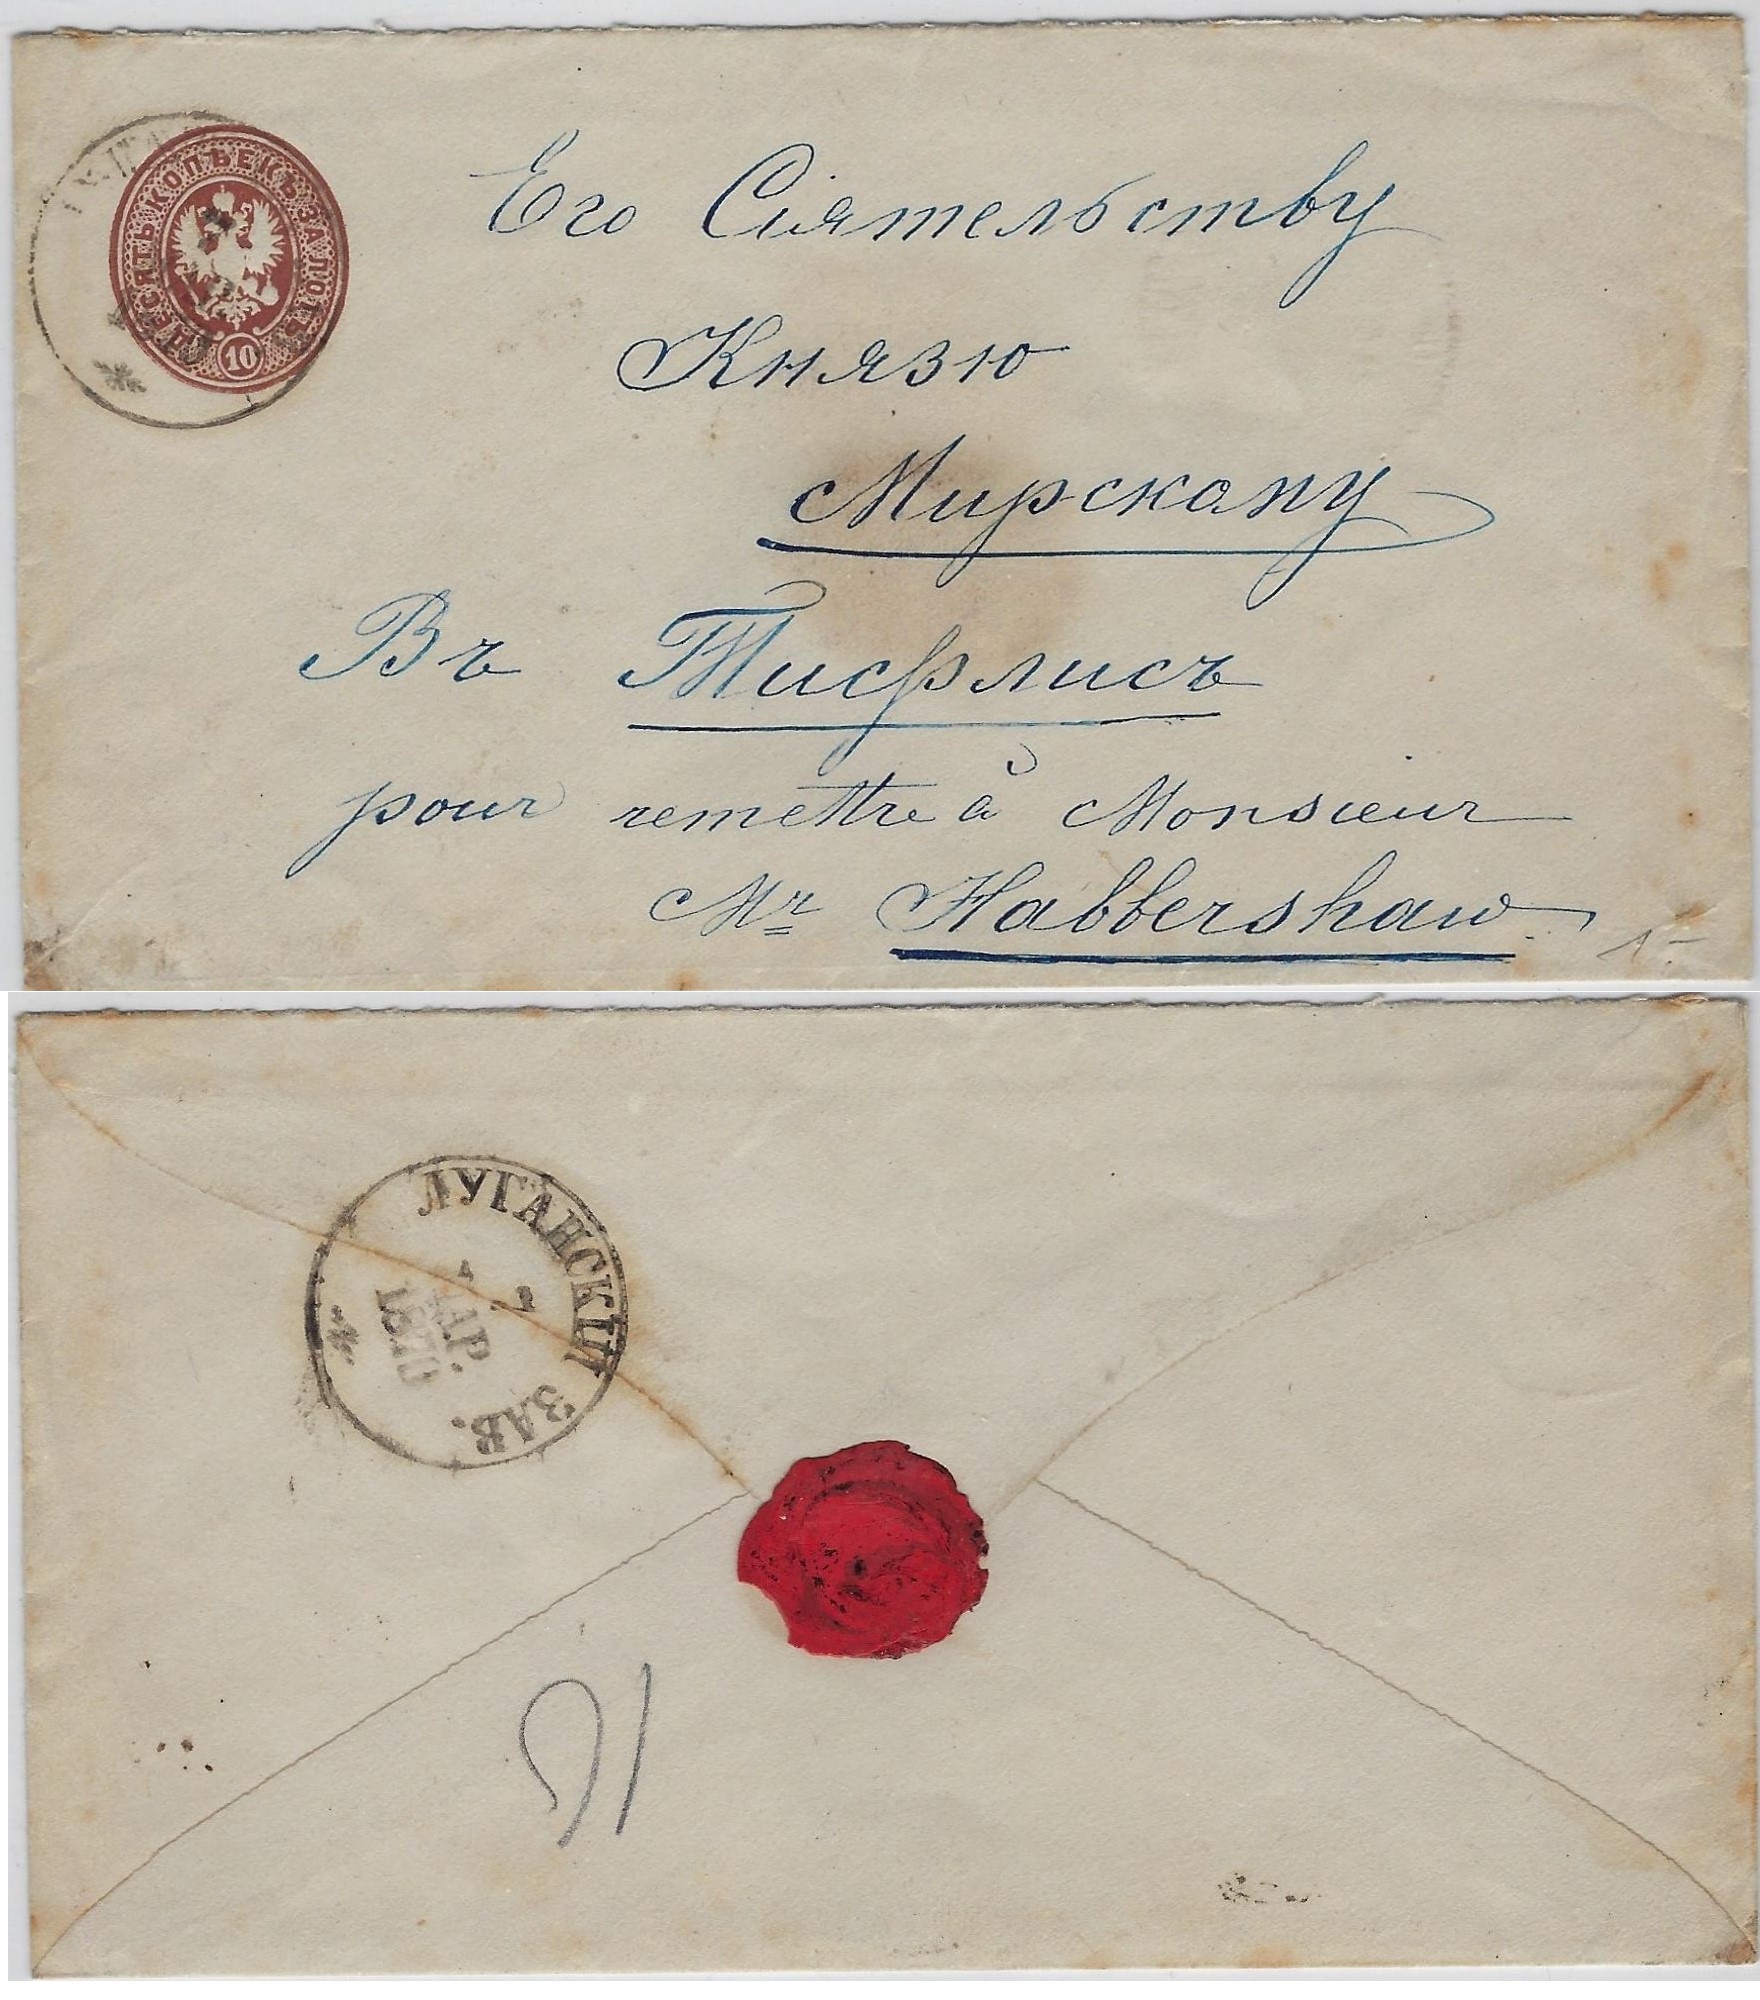 ДЕСЯТЬ КОПѢЕКЪ ЗА ЛОТЪ
10
Его Сіятельству
Князю
Мирскому
Въ Тифлисъ
pour remettre à Monsieur
Mr Habbershaw
1-
ЛУГАНСКІЙ ЗАВ.
1870
91